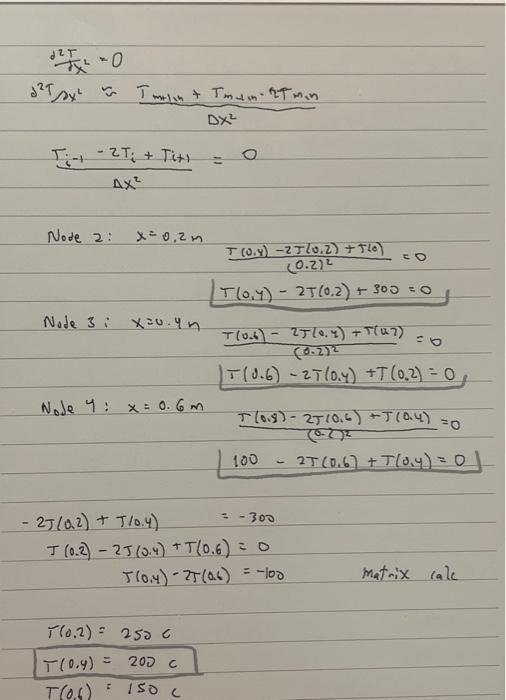 d²T/∂x² = 0
d²T/∂x² ≈ (T m+1,n + T m-1,n - 2T m,n) / Δx²
(T i-1 - 2T i + T i+1) / Δx² = 0
Node 2: x=0.2m
(T(0.4) - 2T(0.2) + T(0)) / (0.2)² = 0
T(0.4) - 2T(0.2) + 300 = 0
Node 3: x=0.4m
(T(0.6) - 2T(0.4) + T(0.2)) / (0.2)² = 0
T(0.6) - 2T(0.4) + T(0.2) = 0
Node 4: x = 0.6m
(T(0.8) - 2T(0.6) + T(0.4)) / (0.2)² = 0
100 - 2T(0.6) + T(0.4) = 0
-2T(0.2) + T(0.4) = -300
T(0.2) - 2T(0.4) + T(0.6) = 0
T(0.4) - 2T(0.6) = -100 matrix calc
T(0.2) = 250 c
T(0.4) = 200 c
T(0.6) = 150 c